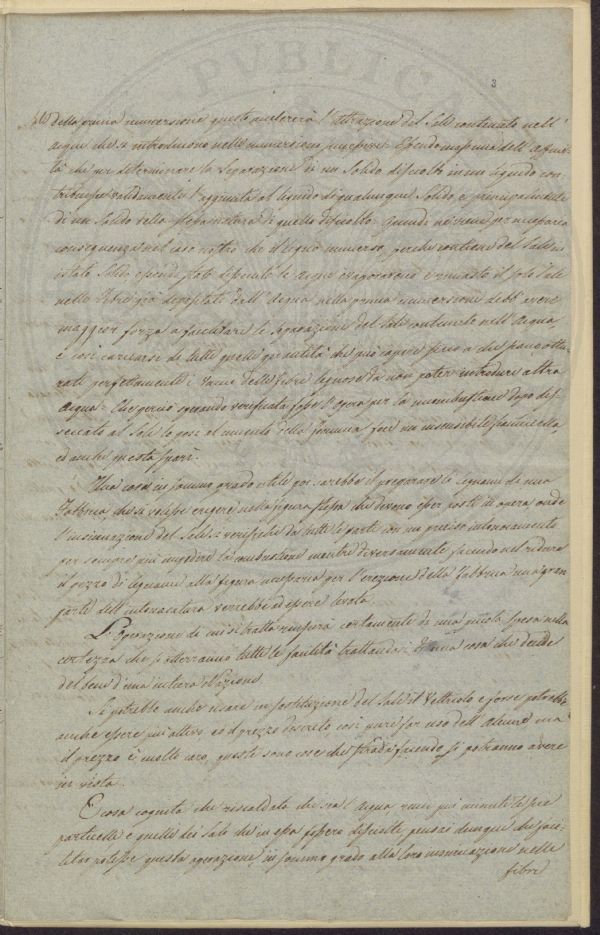 PVBLICA
3
della prima immersione questo accelererà l'attrazione del Sale contenuto nell'
acqua che si introducono nelle immersioni successive. Essendo massima dell'affini-
tà che per determinare la separazione di un Solido disciolto in un liquido con-
tribuisce validamente l'aggiunta al liquido di qualunque Solido e principalmente
di un Solido della stessa natura di quello disciolto. Quindi ne viene per necessaria
conseguenza nel caso nostro che il legno immerso, perchè contiene del Sale in
istato Solido essendo stato disseccato le acque evaporarono e rimasto il solo Sale
nelle fibre già depositato dall'Acqua nella prima immersione debb'avere
maggior forza a facilitare la separazione del Sale contenuto nell'Acqua,
e così caricarsi di tutta quella quantità che può capire sino a che siano ottu-
rati perfettamente i vacui delle fibre legnose da non poter introdurre altra
acqua. Che perciò sperando verificata fosse l'opera per la incombustione dopo dis-
seccato al Sole lo posi al cimento della fiamma fece un insensibile
ed anche questa sparì.
Una cosa in sommo grado utile poi sarebbe il preparare li legnami di una
Fabbrica che si volesse erigere nella figura stessa che devono esser posti in opera onde
l'insinuazione del Sale si verifichi da tutte le parti con un preciso intonacamento
per sempre più impedire la combustione mentre diversamente facendo nel ridurre
il pezzo di legname alla figura necessaria per l'erezione della Fabbrica una gran
parte dell'intonacatura verrebbe ad essere levata.
L'Operazione di cui si tratta riuscirà certamente di una piccola spesa nella
certezza che si otterranno tutte le facilità trattandosi di una cosa che decide
del bene d'una intiera Nazione.
Si potrebbe anche usare in sostituzione del Sale il Vetriolo e forse potrebbe
anche essere più attivo, ed il prezzo discreto così pure far uso dell'Allume ma
il prezzo è molto caro, queste sono cose che facendo si potranno avere
in vista.
E cosa cognita che riscaldata che sia l'acqua rende più minute le sue
particelle e quelle del Sale che in essa fossero disciolte pensai dunque che faci-
litar potesse questa operazione in sommo grado alla loro insinuazione nelle
fibre